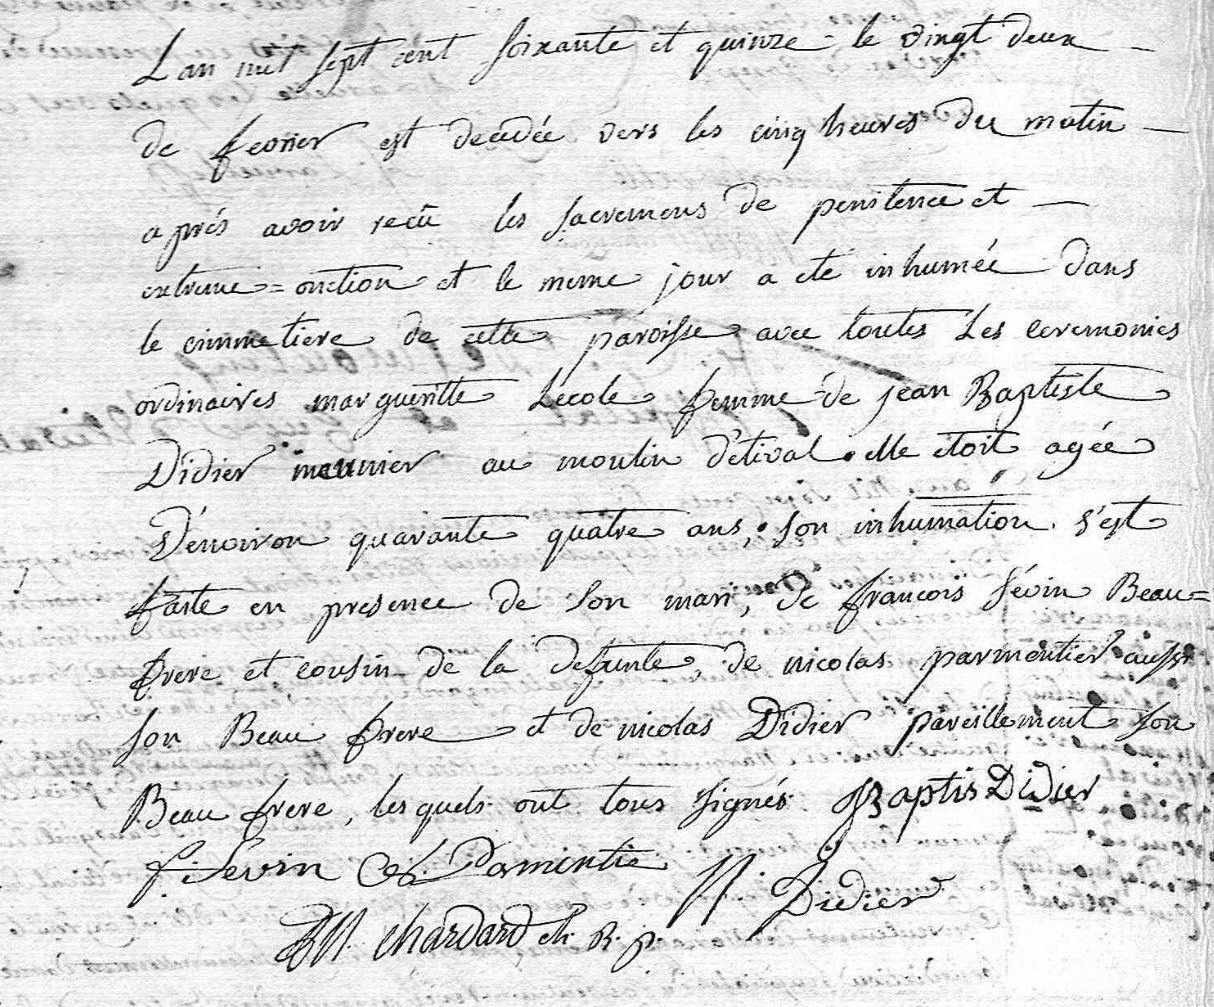 L'an mil sept cent soixante et quinze = le vingt deux -
de fevrier est decedée vers les cinq heures du matin -
aprés avoir recu les sacremens de penitence et -
extreme = onction et le meme jour a eté inhumée dans
le cimmetiere de cette paroisse avec toutes les ceremonies
ordinaires margueritte Lecole femme de jean Baptiste
Didier meunier au moulin d'étival. elle etoit agée
D'environ quarante quatre ans, son inhumation s'est
faite en presence de son mari, de francois sévin Beau=
frere et cousin de la defunte, de nicolas parmentier aussi
son Beau frere et de nicolas Didier pareillement son
Beau frere, lesquels ont tous signés JBaptis Didier
f. sevin N. Parmentie N. Didier
chardard ch. R. p.